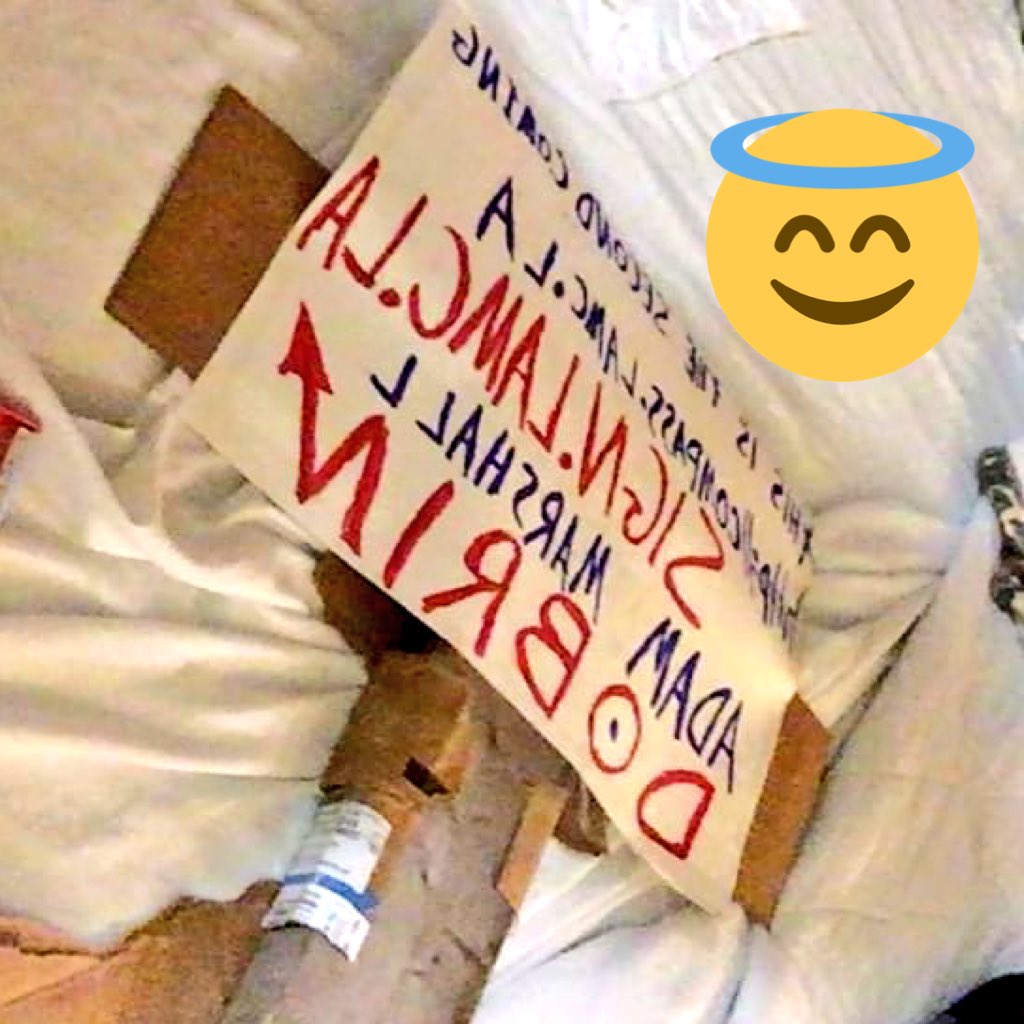 THIS IS THE SECOND COMING
http://COMPASS.LAMC.LA
SIGN.LLAMC.LA
ADAM MARSHALL
DOBRIN